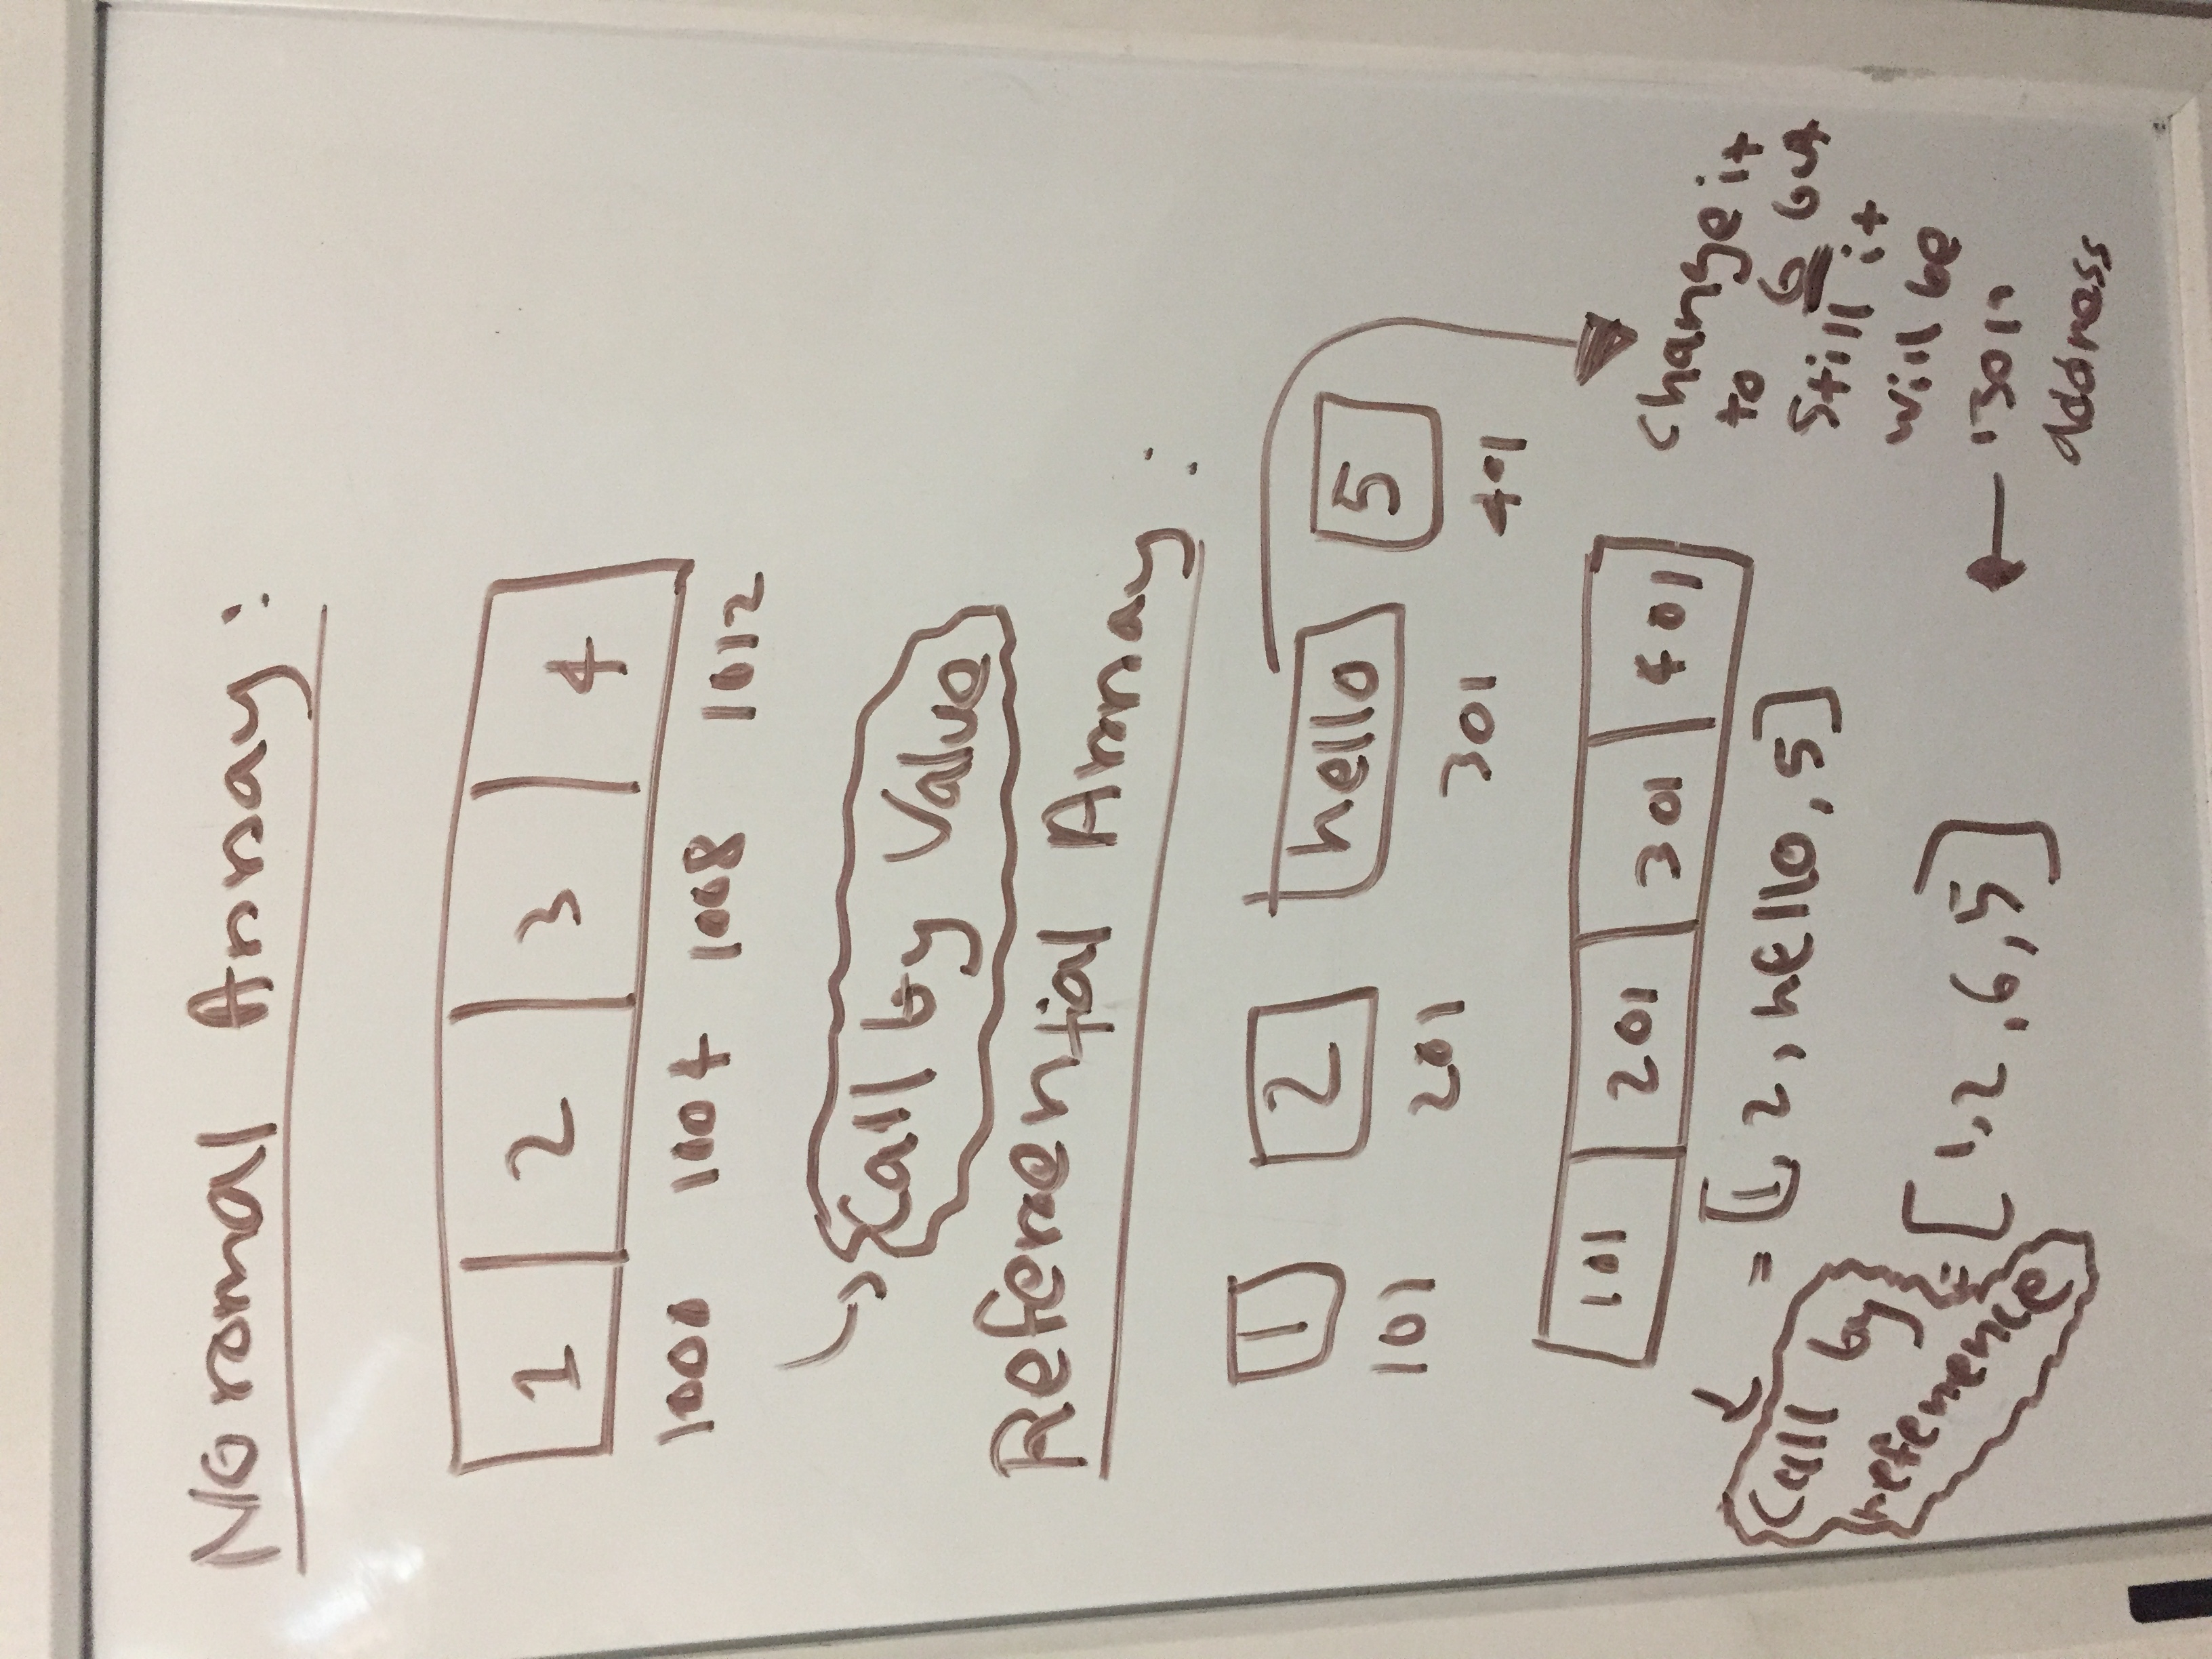 Normal Array:
1 2 3 4
1000 1004 1008 1012
Call by Value
Referential Array:
1 2 hello 5
101 201 301 401
101 201 301 401
= [1, 2, hello, 5]
Call by
reference
= [1,2,6,5]
change it
to 6 but
still it
will be
"301"
address